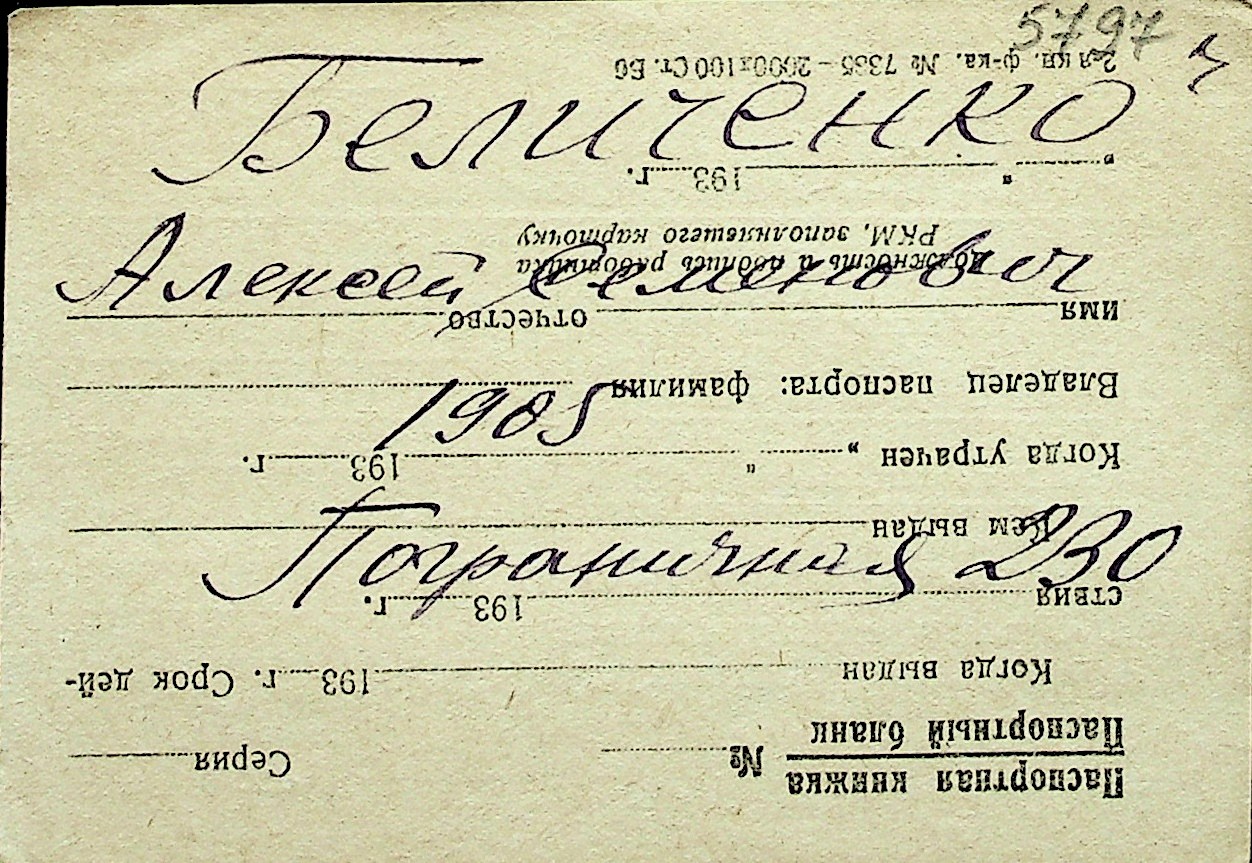 5797
ч
Беличенко
Алексей Семенович
1905
Пограничная 230
Паспортная книжка
Паспортный бланк
№ Серия
Когда выдан 193 г. Срок дей-
ствия 193 г.
Кем выдан
Когда утрачен „ " 193 г.
Владелец паспорта: фамилия
имя отчество
Должность и подпись работника
РКМ, заполнившего карточку
„ " 193 г.
2-я кн. ф-ка. № 7335 – 2000х100 Ст. Б6